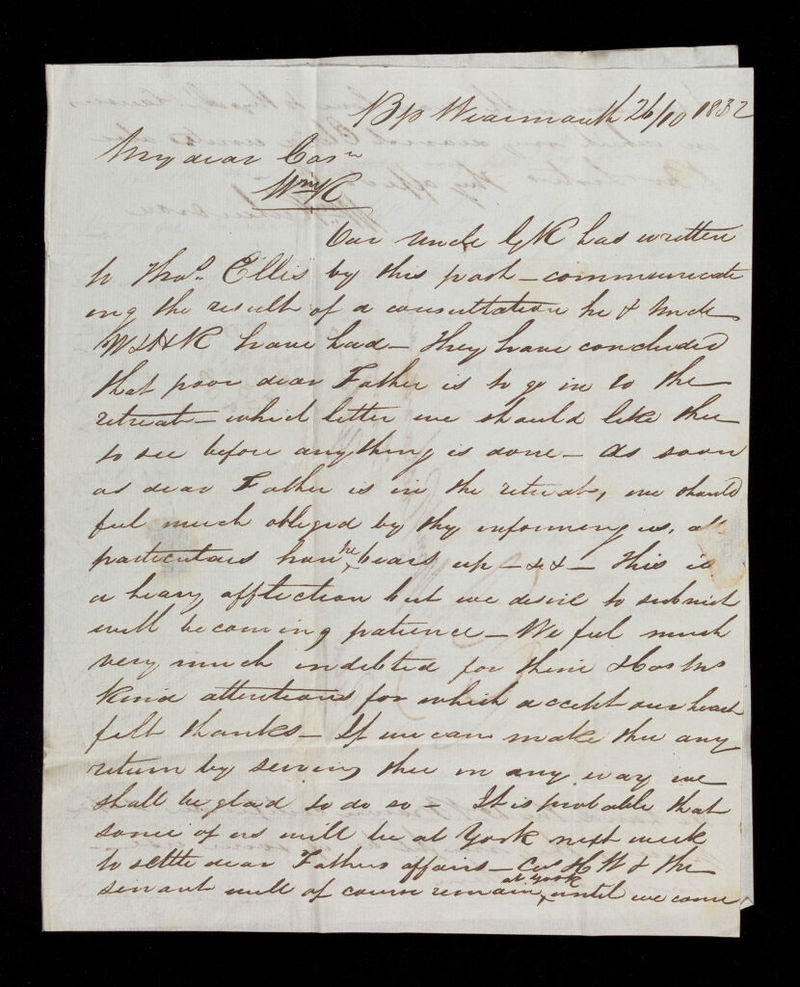 Bp Wearmouth 26/10 1832
My dear Cosn
Wm K
Our Uncle G K has written
to Thos. Ellis by this post – communicate
ing the result of a consultation he & Uncle
W & H K have had – They have concluded
that poor dear Father is to go in to the
retreat – which letter we should like thee
to see before anything is done – As soon
as dear Father is in the retreat, we should
feel much obliged by thy informing us, all
particulars how he bears up – & & – This is
a heavy affliction but we desire to submit
with becoming patience – We feel much
very much indebted for thine
kind attentions for which accept our heart
felt thanks – If we can make thee any
return by serving thee in any way we
shall be glad to do so – It is probable that
some of us will be at York next week
to settle dear Fathers affairs – Cos H W & the
servant will of course remain at York until we come